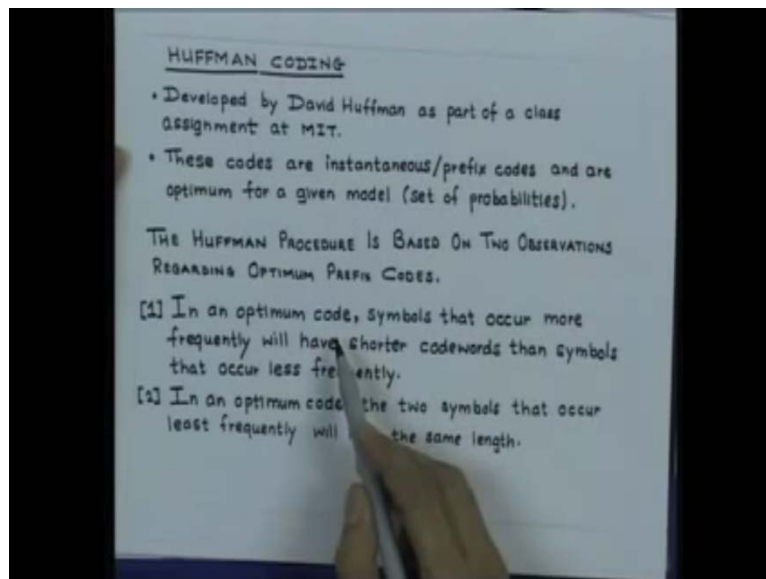 HUFFMAN CODING
• Developed by David Huffman as part of a class
assignment at MIT.
• These codes are instantaneous/prefix codes and are
optimum for a given model (set of probabilities).
THE HUFFMAN PROCEDURE IS BASED ON TWO OBSERVATIONS
REGARDING OPTIMUM PREFIX CODES.
[1] In an optimum code, symbols that occur more
frequently will have shorter codewords than symbols
that occur less frequently.
[2] In an optimum code the two symbols that occur
least frequently will the same length.